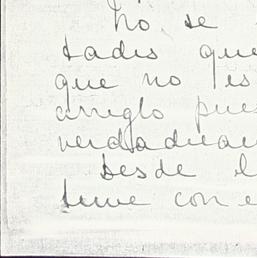 No se
tades que
que no es
arreglo pues
verdaderam
Desde l
tuve con e